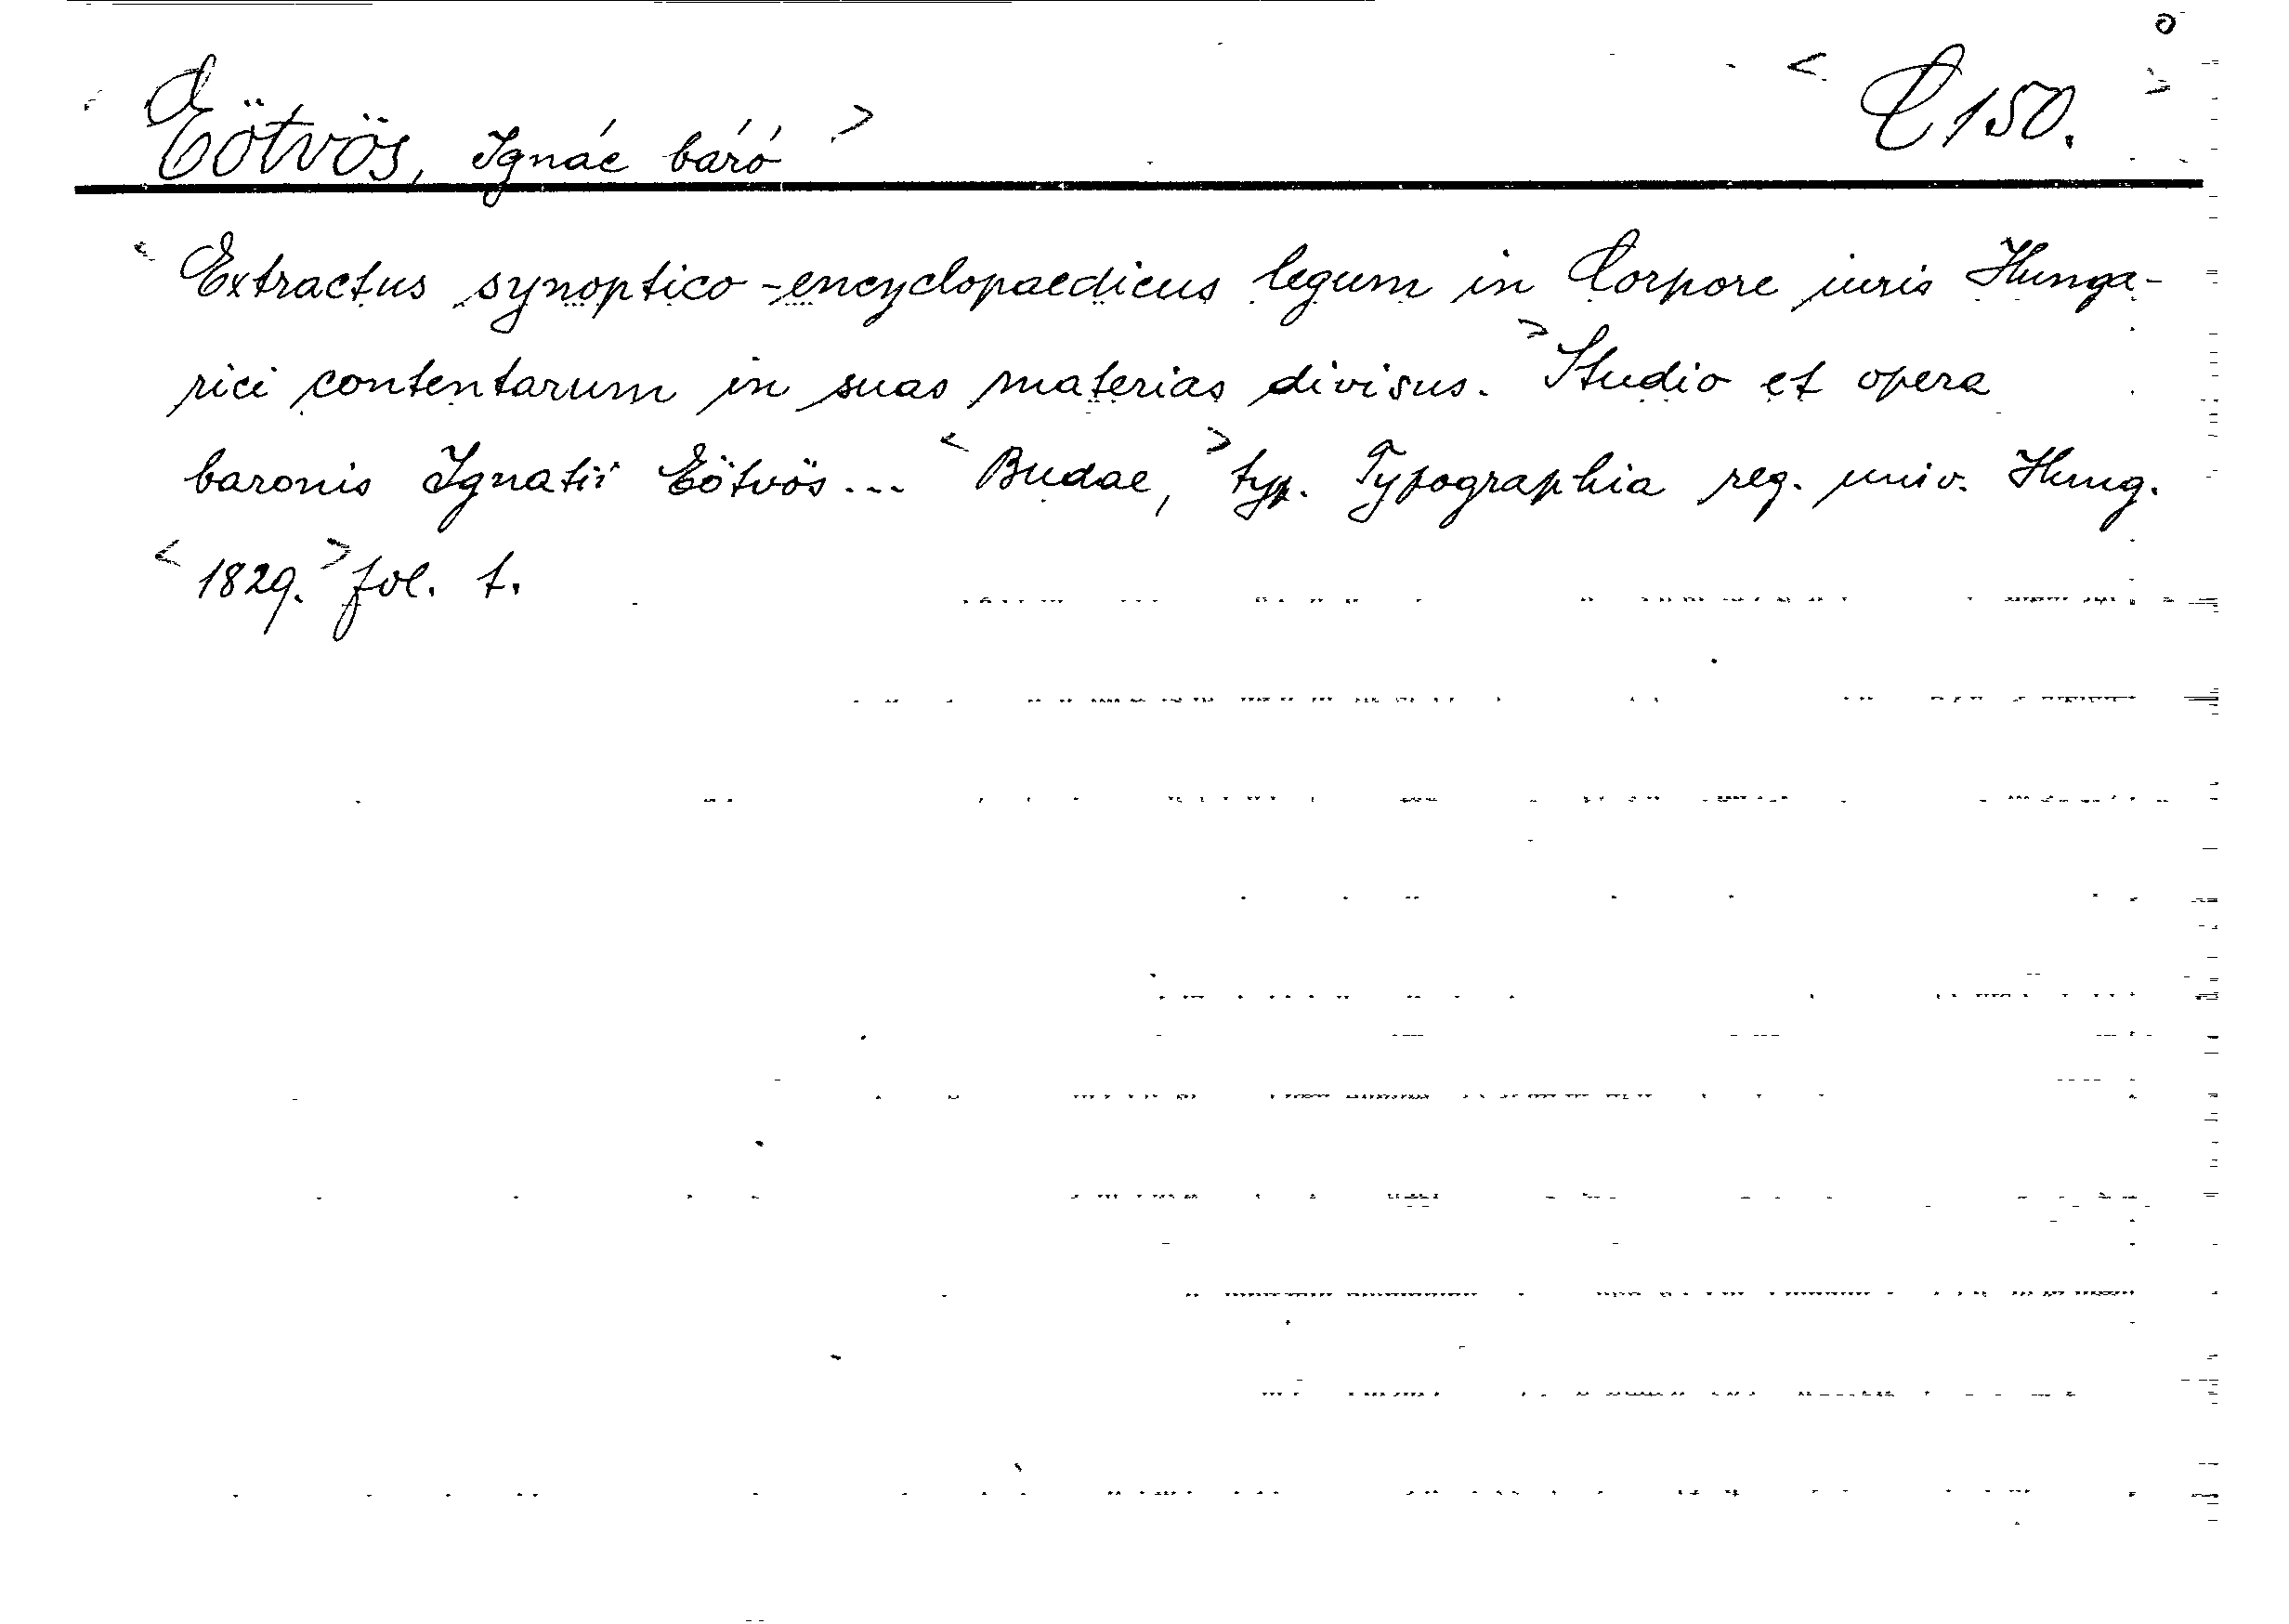 < Eötvös, Ignác báró > < C 150. >
< Extractus synoptico-encyclopaedicus legum in Corpore iuris Hunga-
rici contentarum in suas materias divisus. > Studio et opera
baronis Ignatii Eötvös... < Budae, > typ. Typographia reg. univ. Hung.
< 1829. > fol. t.